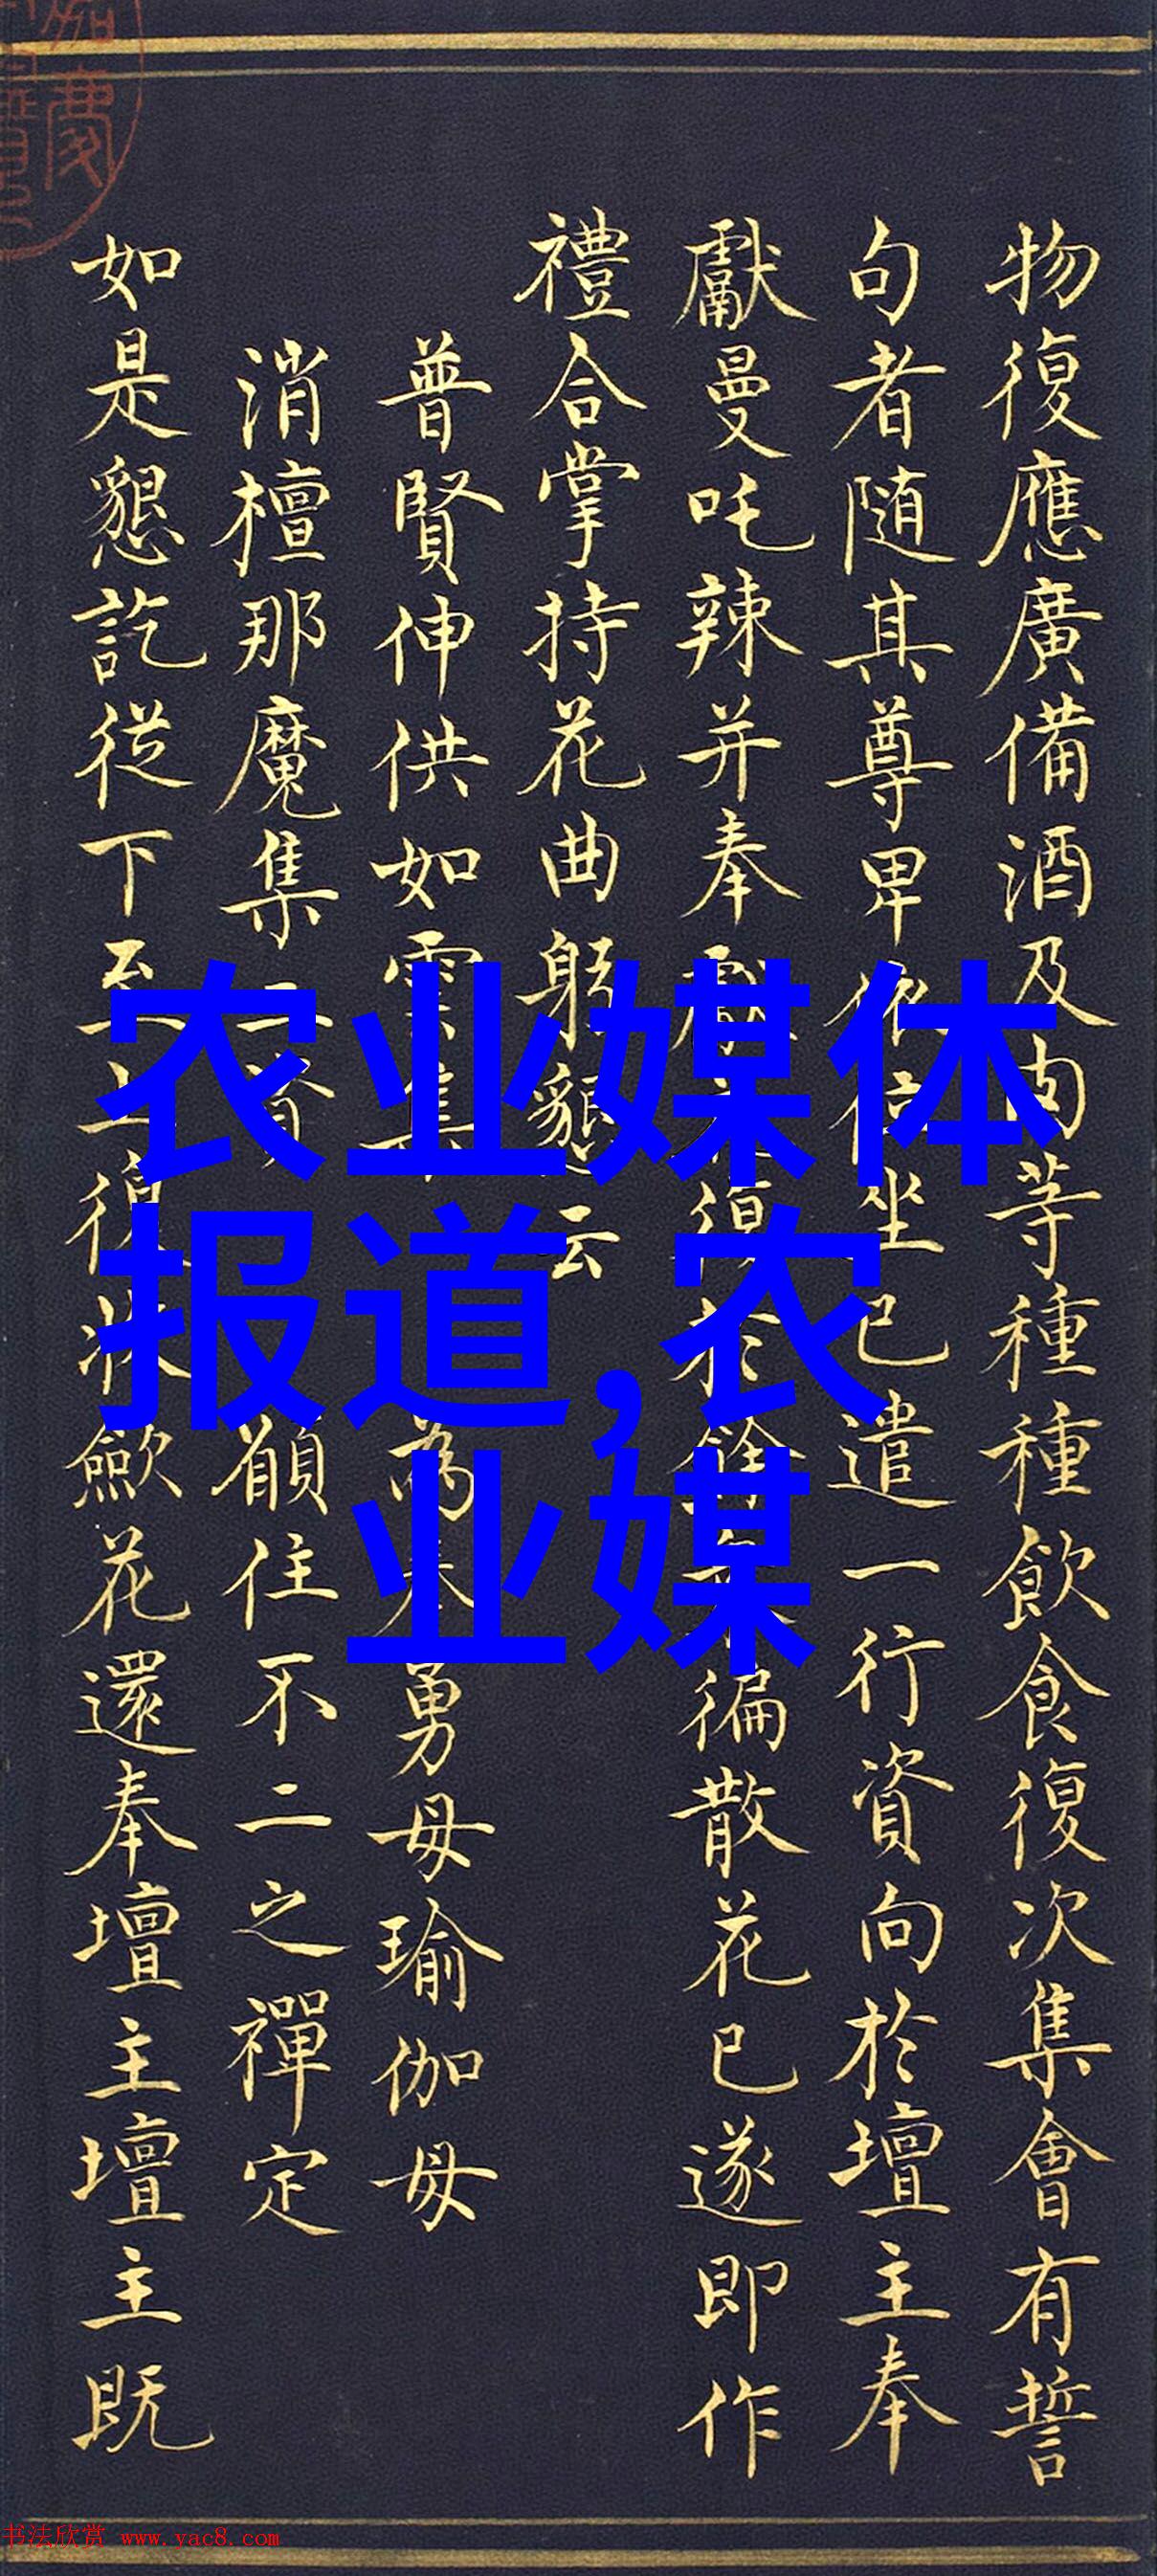 物復應廣備酒及肉等種種飲食復次集會有誓
句者随其尊卑依位坐已遣一行資向於壇主奉
獻曼吒辣并奉獻 復於 徧散花已遂即作
禮合掌持花曲躬懇 云
普賢伸供如雲集
為奉勇母瑜伽母
消檀那魔集二資
願住不二之禪定
如是懇訖從下至上復 歛花還奉壇主壇主既
农业媒体
报道,农
业媒
书法欣赏 www.yac8.com